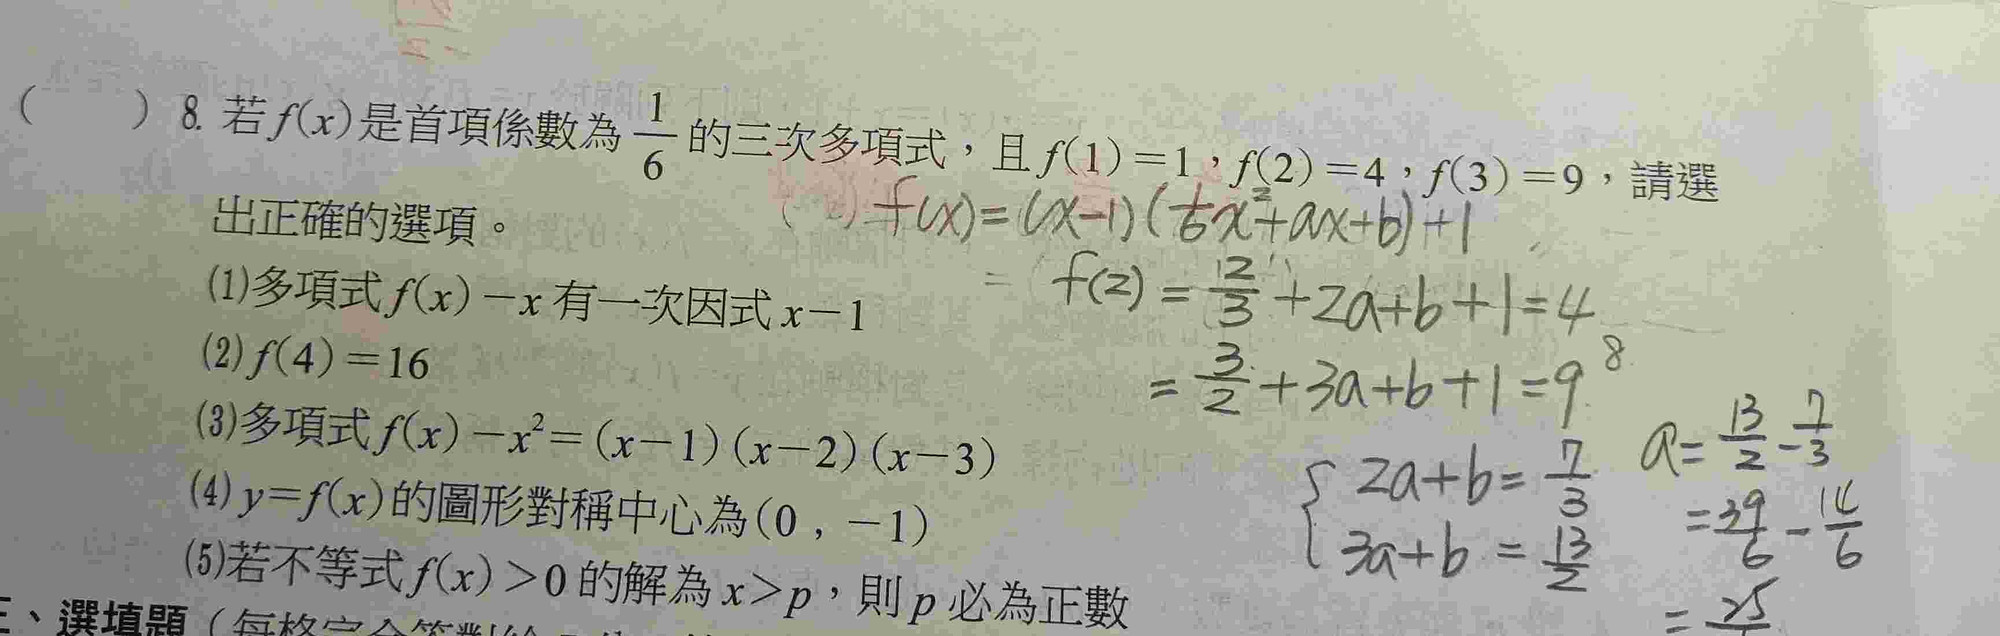 ( ) 8. 若 f(x) 是首項係數為 1/6 的三次多項式，且 f(1)=1，f(2)=4，f(3)=9，請選
出正確的選項。
f(x)=(x-1)(1/6x²+ax+b)+1
(1)多項式 f(x)-x 有一次因式 x-1
= f(2)=2/3+2a+b+1=4
(2) f(4)=16
=3/2+3a+b+1=9 8
(3)多項式 f(x)-x²=(x-1)(x-2)(x-3)
{ 2a+b=7/3
3a+b=13/2
a=13/2-7/3
=39/6-14/6
=25
(4) y=f(x)的圖形對稱中心為(0，-1)
(5)若不等式 f(x)>0 的解為 x>p，則 p 必為正數
、選填題